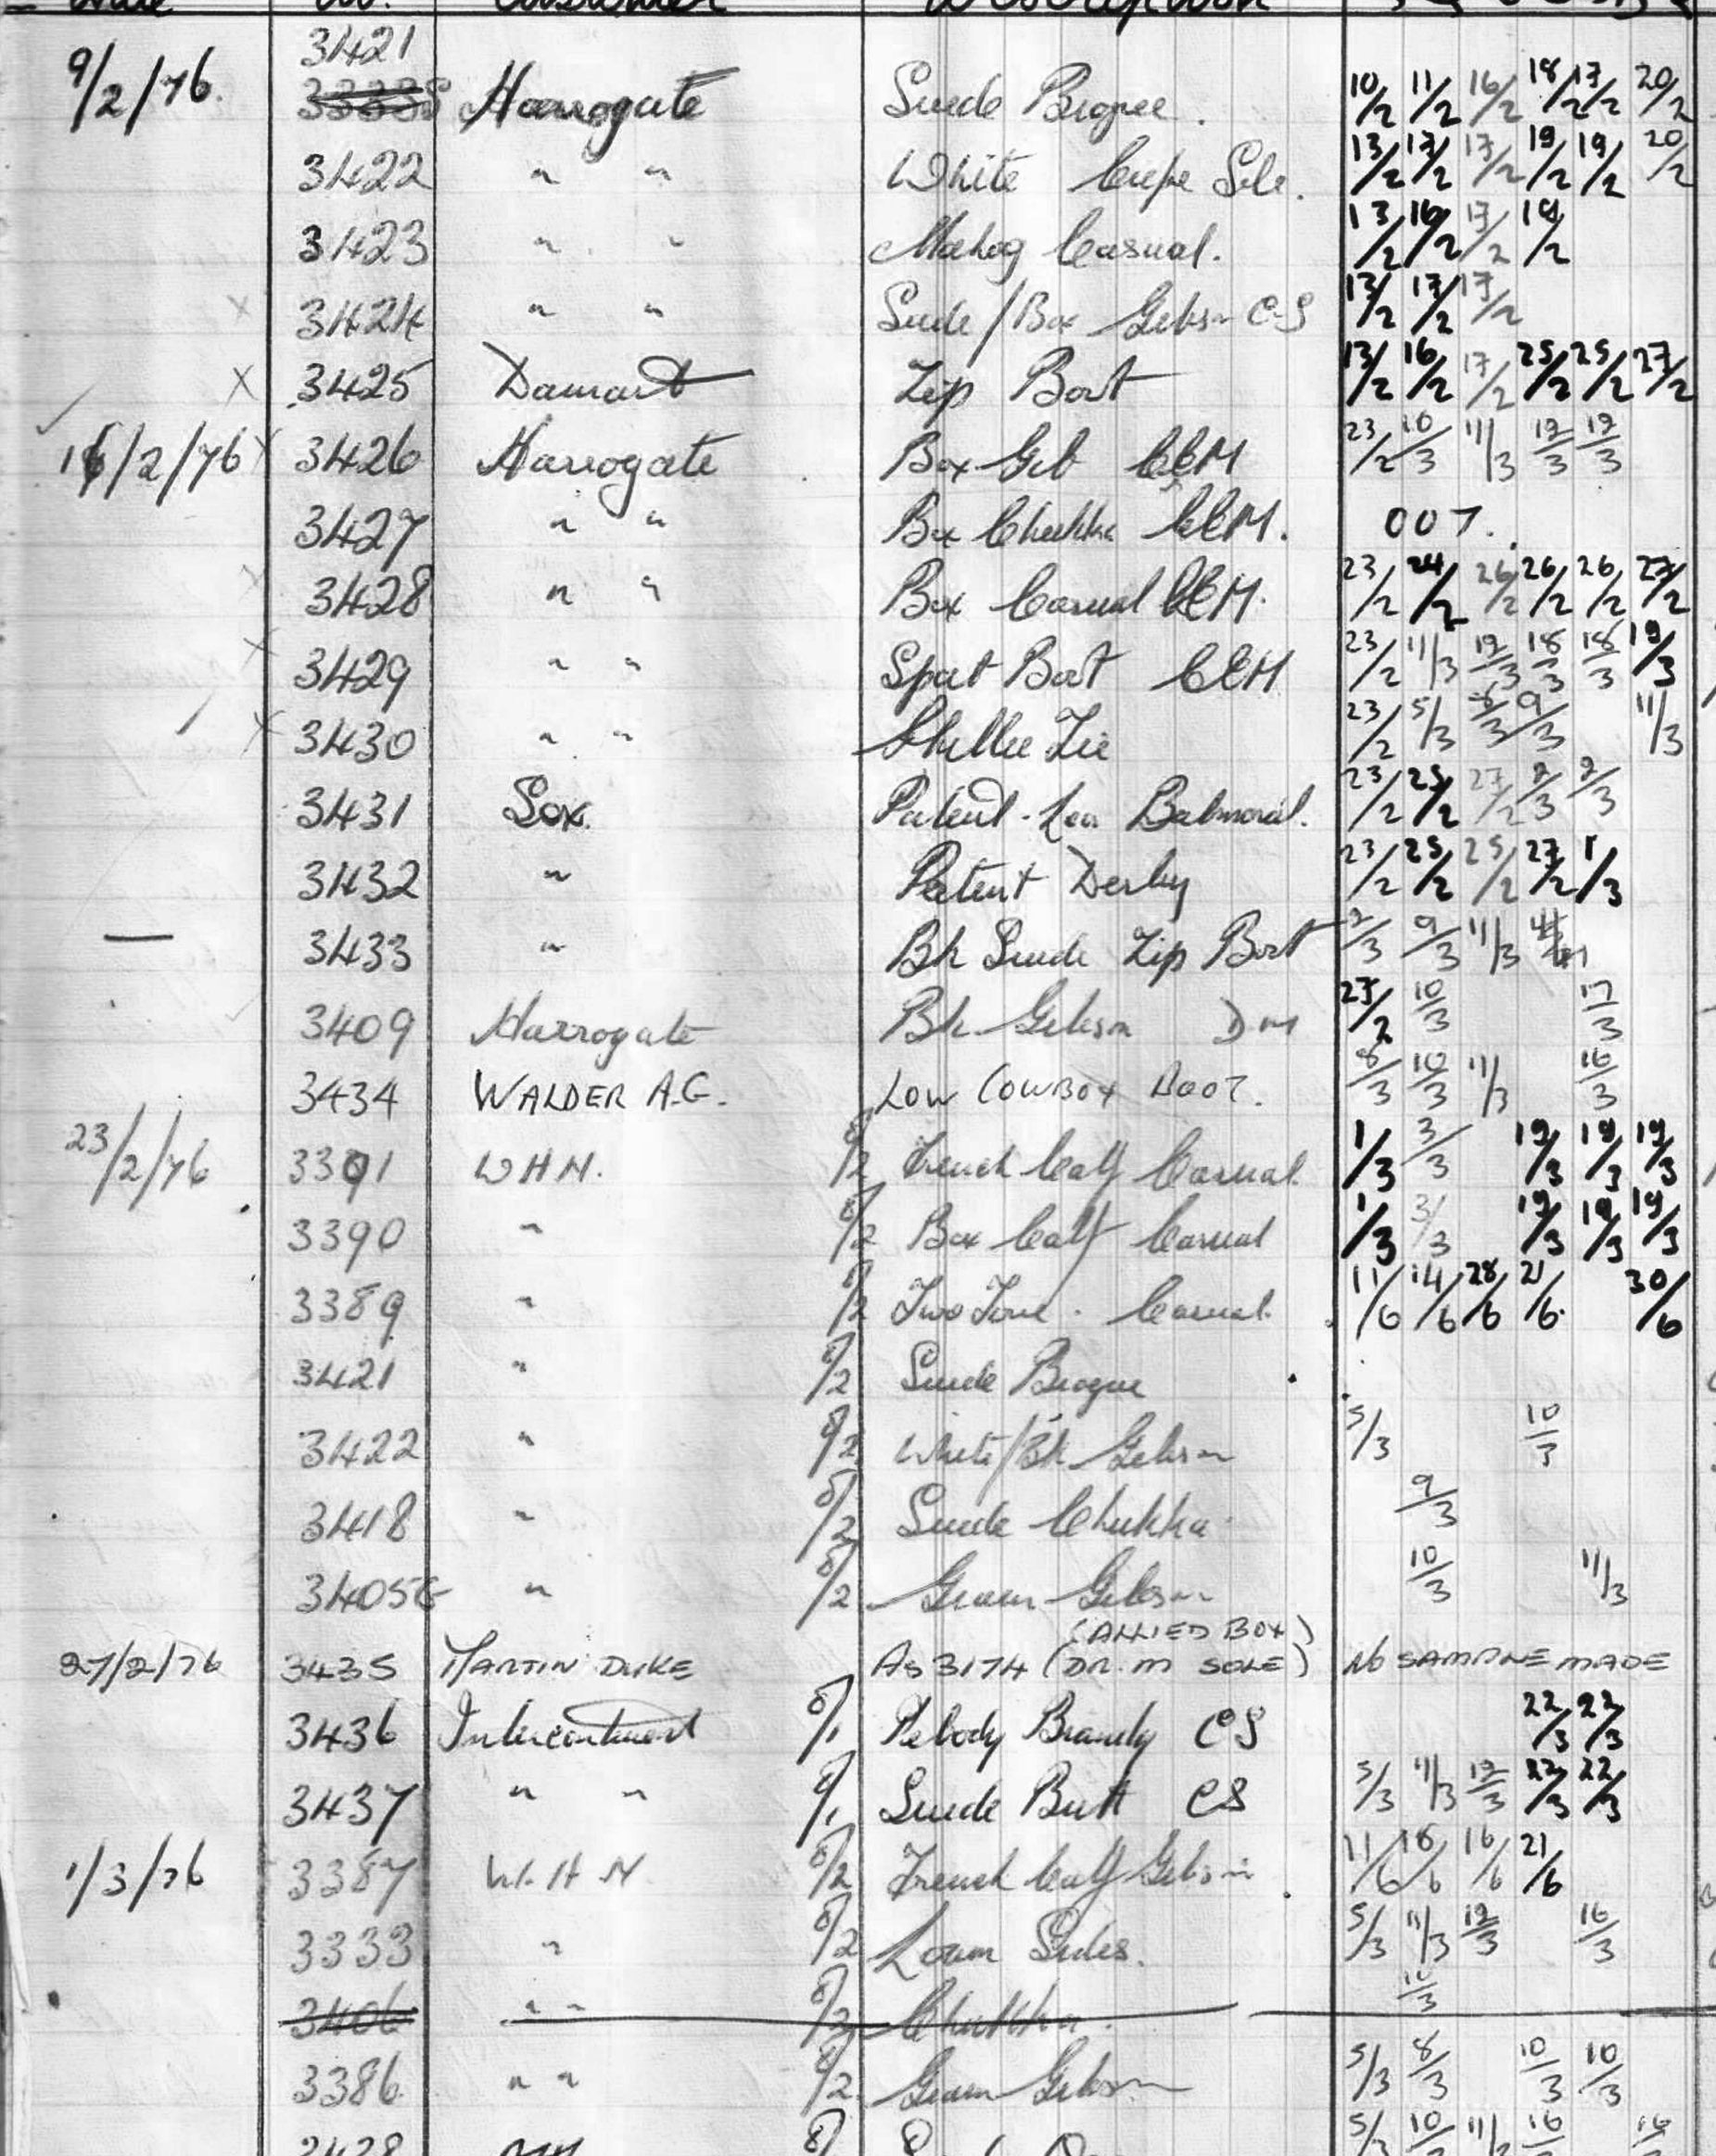 Date No. Customer Description
3421
9/2/76 Harrogate Suede Brogue. 10/2 11/2 16/2 18/2 17/2 20/2
3422 " " White Crepe Sole. 13/2 17/2 17/2 19/2 19/2 20/2
3423 " " Mahog Casual. 13/2 16/2 17/2 19/2
3424 " " Suede/Box Gibson C-S 13/2 17/2 17/2
X 3425 Damart Zip Boot 13/2 16/2 17/2 25/2 25/2 27/2
16/2/76 X 3426 Harrogate Box Gib CCM 23/2 10/3 11/3 12/3 12/3
3427 " " Box Chukka CCM. 007.
3428 " " Box Casual CCM. 23/2 24/2 26/2 26/2 26/2 27/2
X 3429 " " Sport Boot CCM 23/2 11/3 12/3 18/3 18/3 19/3
X 3430 " " Tie 23/2 5/3 8/3 9/3 11/3
3431 Sox. Patent Balmoral. 23/2 25/2 27/2 2/3 2/3
3432 " Patent Derby 23/2 25/2 25/2 27/2 1/3
3433 " Bk Suede Zip Boot 2/3 9/3 11/3
3409 Harrogate Bk Gibson DM 25/2 10/3 17/3
3434 WALDER A.G. LOW COWBOY BOOT. 8/3 10/3 11/3 16/3
23/2/76 3391 W H N. 8/2 French Calf Casual. 1/3 3/3 19/3 19/3 19/3
3390 " 8/2 Box Calf Casual 1/3 3/3 19/3 19/3 19/3
3389 " 8/2 Two Tone. Casual. 11/6 14/6 28/6 21/6 30/6
3421 " 8/2 Suede Brogue
3422 " 8/2 White/Bk Gibson 5/3 10/3
3418 " 8/2 Suede Chukka 9/3
3405G " 8/2 Grain Gibson 10/3 11/3
(ALLIED BOX)
27/2/76 3435 MARTIN DUKE AS 3174 (DR. M SOLE) NO SAMPLE MADE
3436 Intercontinent 8/1 Pebody Brandy CS 22/3 22/3
3437 " " 8/1 Suede Butt CS 5/3 11/3 12/3 22/3 22/3
1/3/76 3387 W. H N 8/2 French Calf Gibson 11/6 16/6 16/6 21/6
3333 " 8/2 Sides. 5/3 11/3 12/3 16/3
3406 " " 8/2 Chukka. 10/3
3386 " " 8/2 Grain Gibson 5/3 8/3 10/3 10/3